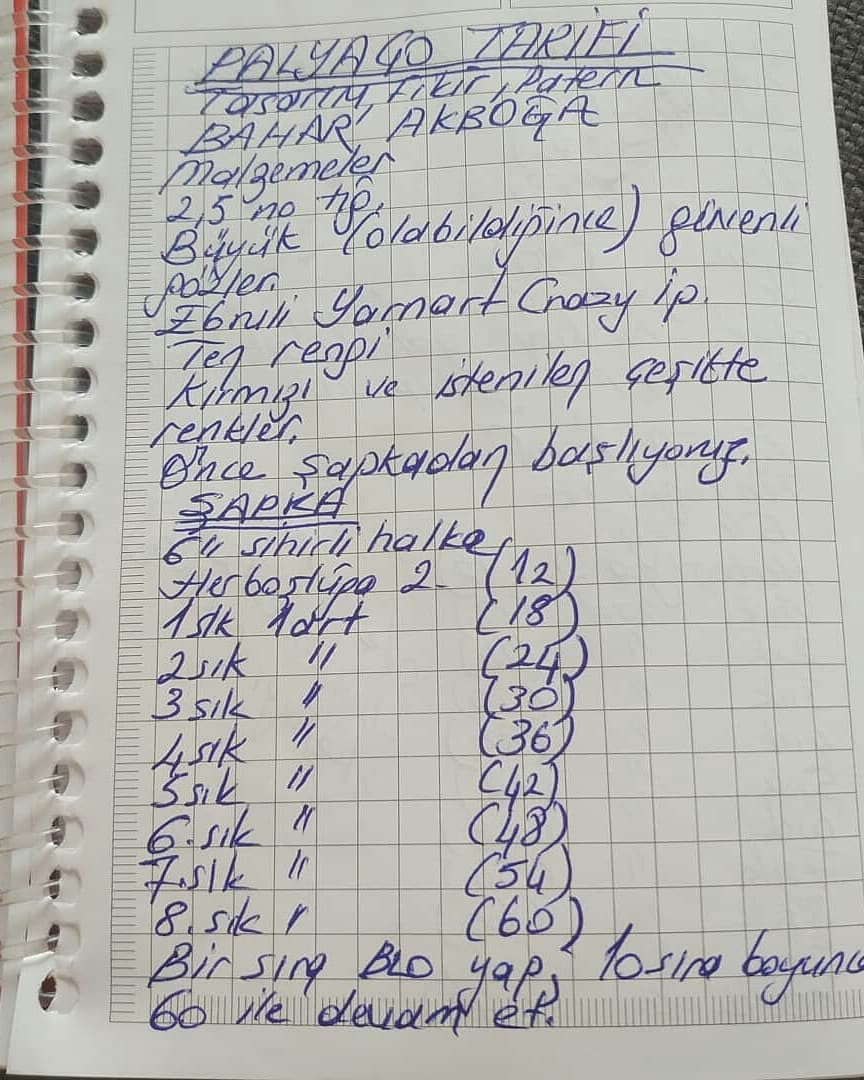 PALYAÇO TARİFİ
Tasarım, Fikir, Patern
BAHAR AKBOĞA
Malzemeler
2,5 no tığ.
Büyük (olabildiğince) güvenli
gözler.
Ebruli Yarnart Crazy ip.
Ten rengi
Kırmızı ve istenilen çeşitte
renkler.
Önce şapkadan başlıyoruz.
ŞAPKA
6'lı sihirli halka
Her boşluğa 2. (12)
1 sık 1 art (18)
2 sık " (24)
3 sık " (30)
4 sık " (36)
5 sık " (42)
6. sık " (48)
7. sık " (54)
8. sık " (60)
Bir sıra BLO yap, 10 sıra boyunc
60 ile devam et.